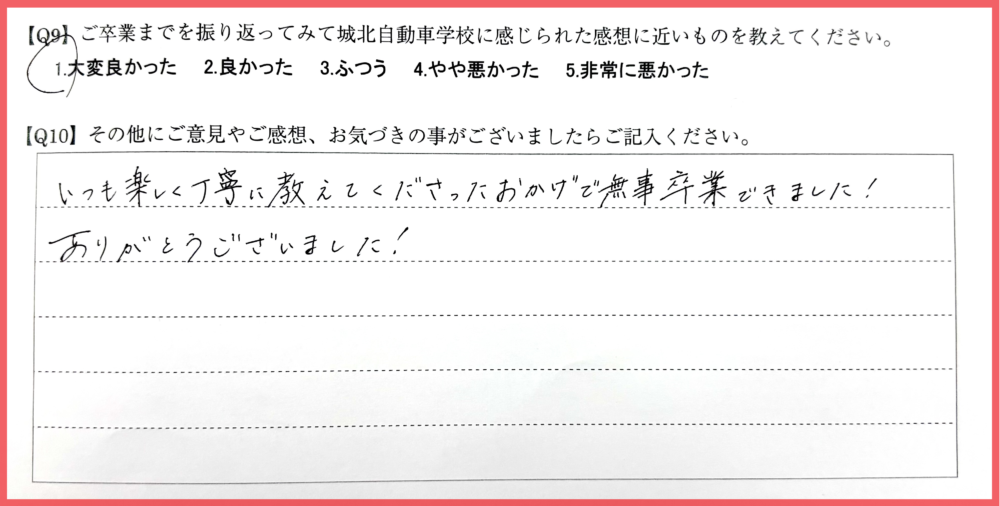 【Q9】ご卒業までを振り返ってみて城北自動車学校に感じられた感想に近いものを教えてください。
1.大変良かった 2.良かった 3.ふつう 4.やや悪かった 5.非常に悪かった
【Q10】その他にご意見やご感想、お気づきの事がございましたらご記入ください。
いつも楽しく丁寧に教えてくださったおかげで無事卒業できました!
ありがとうございました!